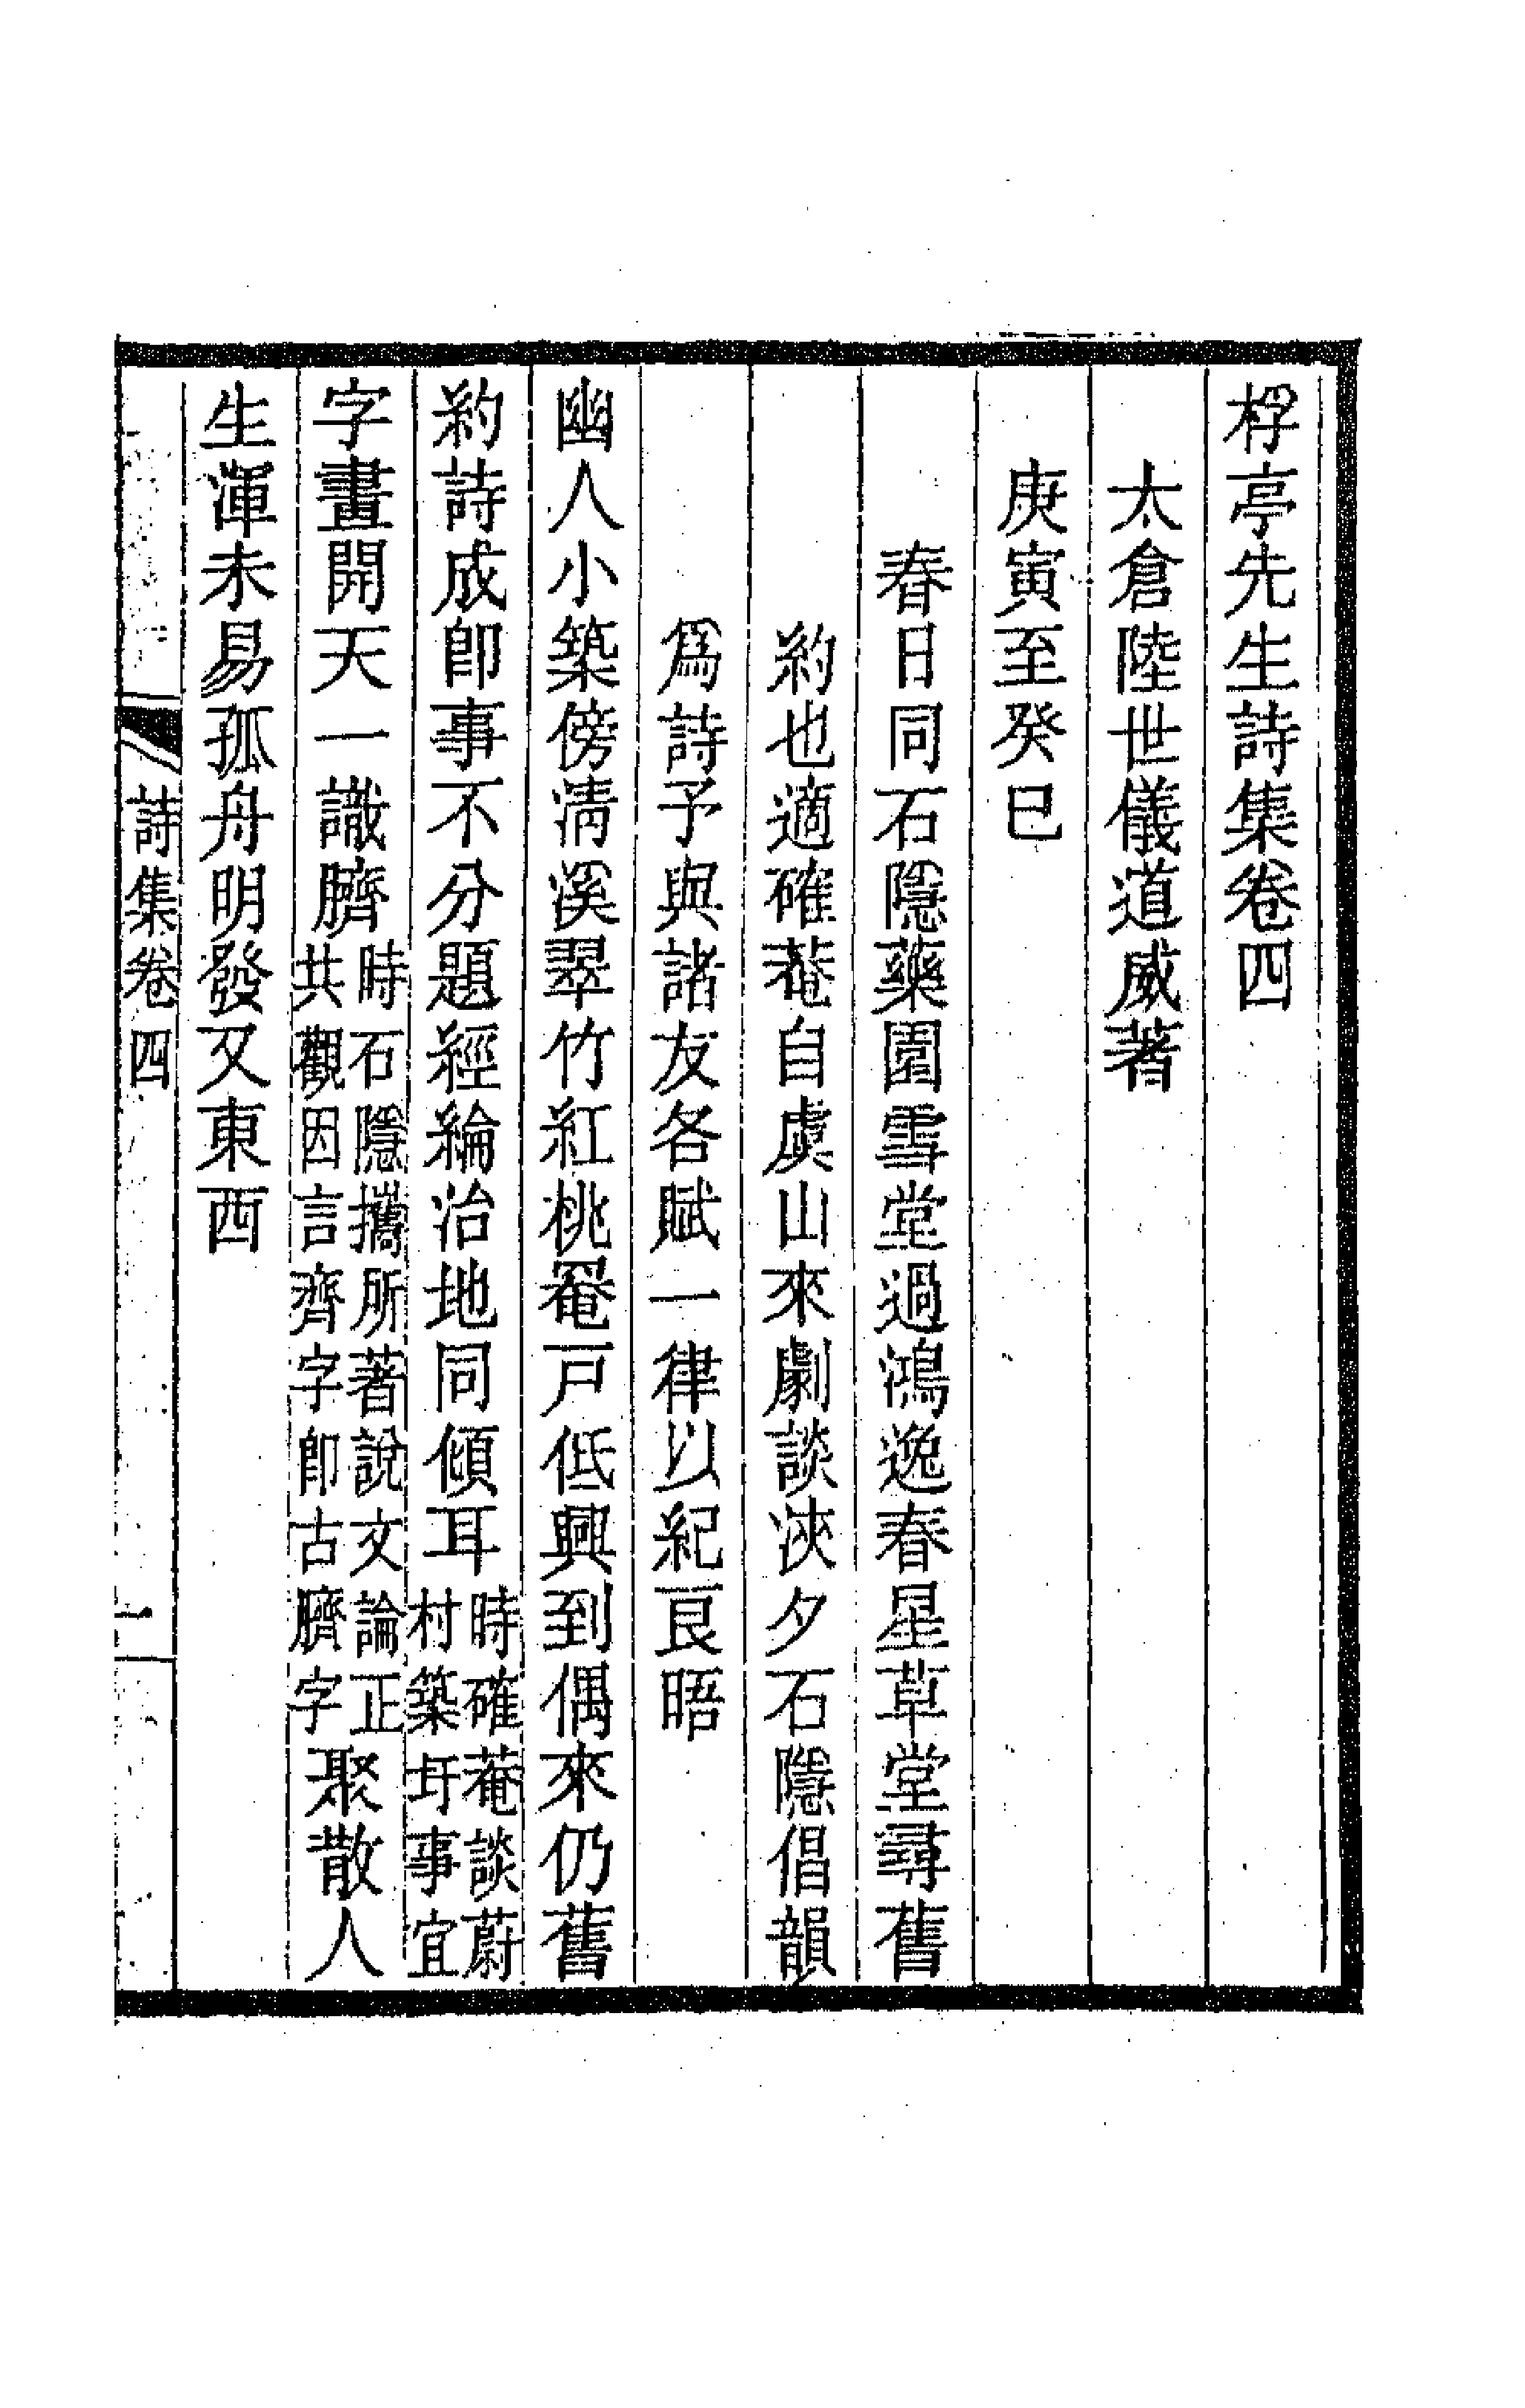 桴亭先生詩集卷四
太倉陸世儀道威著
庚寅至癸巳
春日同石隱藥園雪堂過鴻逸春星草堂尋舊
約也適確菴自虞山來劇談浹夕石隱倡韻
爲詩予與諸友各賦一律以紀良晤
幽人小築傍淸溪翠竹紅桃罨戸低興到偶來仍舊
約詩成卽事不分題經綸治地同傾耳時確菴談蔚
村築圩事宜
字畫開天一識臍時石隱攜所著說文論正
共觀因言齊字卽古臍字聚散人
生渾未易孤舟明發又東西
詩集卷四
一